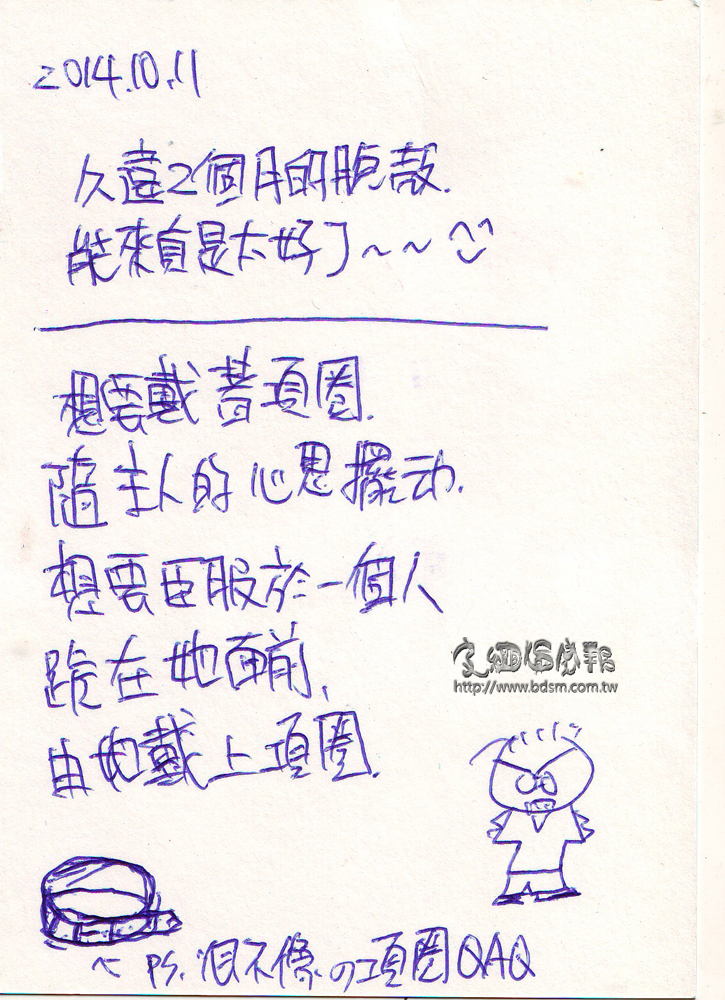 2014.10.11
久違2個月的脫殼.
能來真是太好了~~ ^^
想要戴著項圈.
隨主人的心思擺动.
想要臣服於一個人
跪在她面前,
由她戴上項圈.
http://www.bdsm.com.tw
← PS. 很不像の項圈QAQ